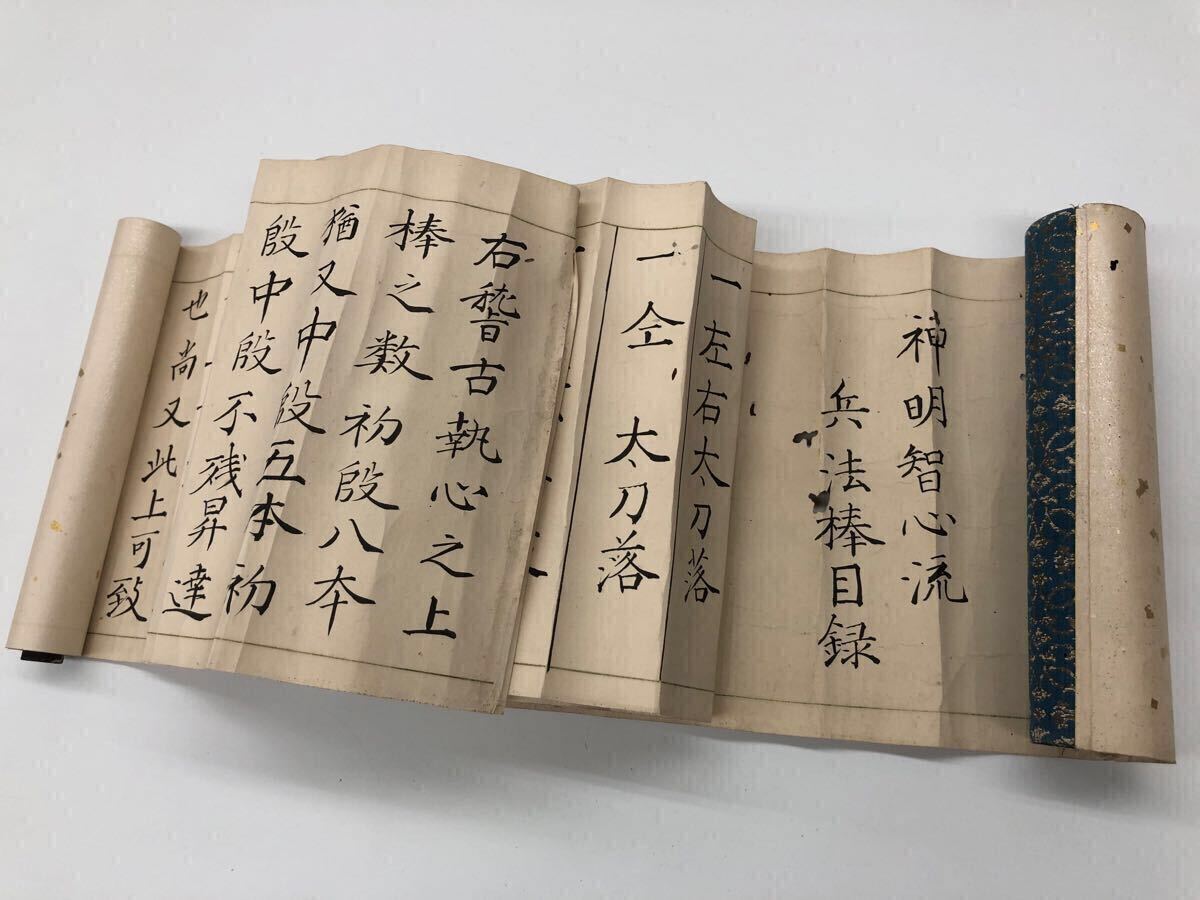 神明智心流
兵法棒目録
一左右太刀落
一仝太刀落
右稽古執心之上
棒之数初段八本
猶又中段五本初
段中段不残昇達
也尚又此上可致